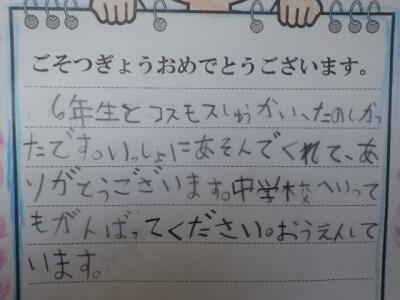 ごそつぎょうおめでとうございます。
6年生とコスモスしゅうかい、たのしかっ
たです。いっしょにあそんでくれて、あ
りがとうございます。中学校へいって
もがんばってください。おうえんして
います。